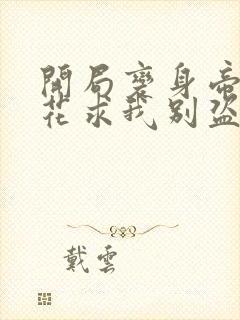 開局褻身帝
花求我別盜
戴雲